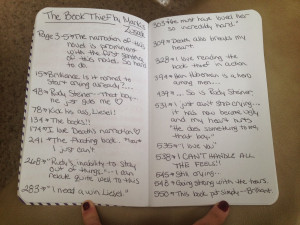 The Book Thief by Markus
Zusak
Page 3-5 * The narration of this
novel is prominent
with the first glimpse
of this novel. So hard
to do.
15 * Brilliance is it normal to
start crying already?...
48 * Rudy Steiner - That boy -
he just gets me ♡
78 * Kick his ass, Liesel!
134 * The books!!
174 * I love Death's narration ♡
241 * The Floating book. "
I just can't
248 * "Rudy's inability to stay
out of things." - I can
relate quite well to this
283 * "I need a win, Liesel."
303 * He must have loved her
so incredibly hard."
309 * Death also breaks my
heart
328 * I love reading the
book thief in action
394 * Ben Huberman is a hero
among men...
439 * ... So is Rudy Steiner.
531 * I just can't stop crying...
it has now become ugly
and my heart hurts
"He does something to me,
that boy."
535 * "I love you"
538 * I CAN'T HANDLE ALL
THE FEELS!!
545 * Still crying...
548 * Going strong with the tears.
550 * This book but simply - Brilliant.